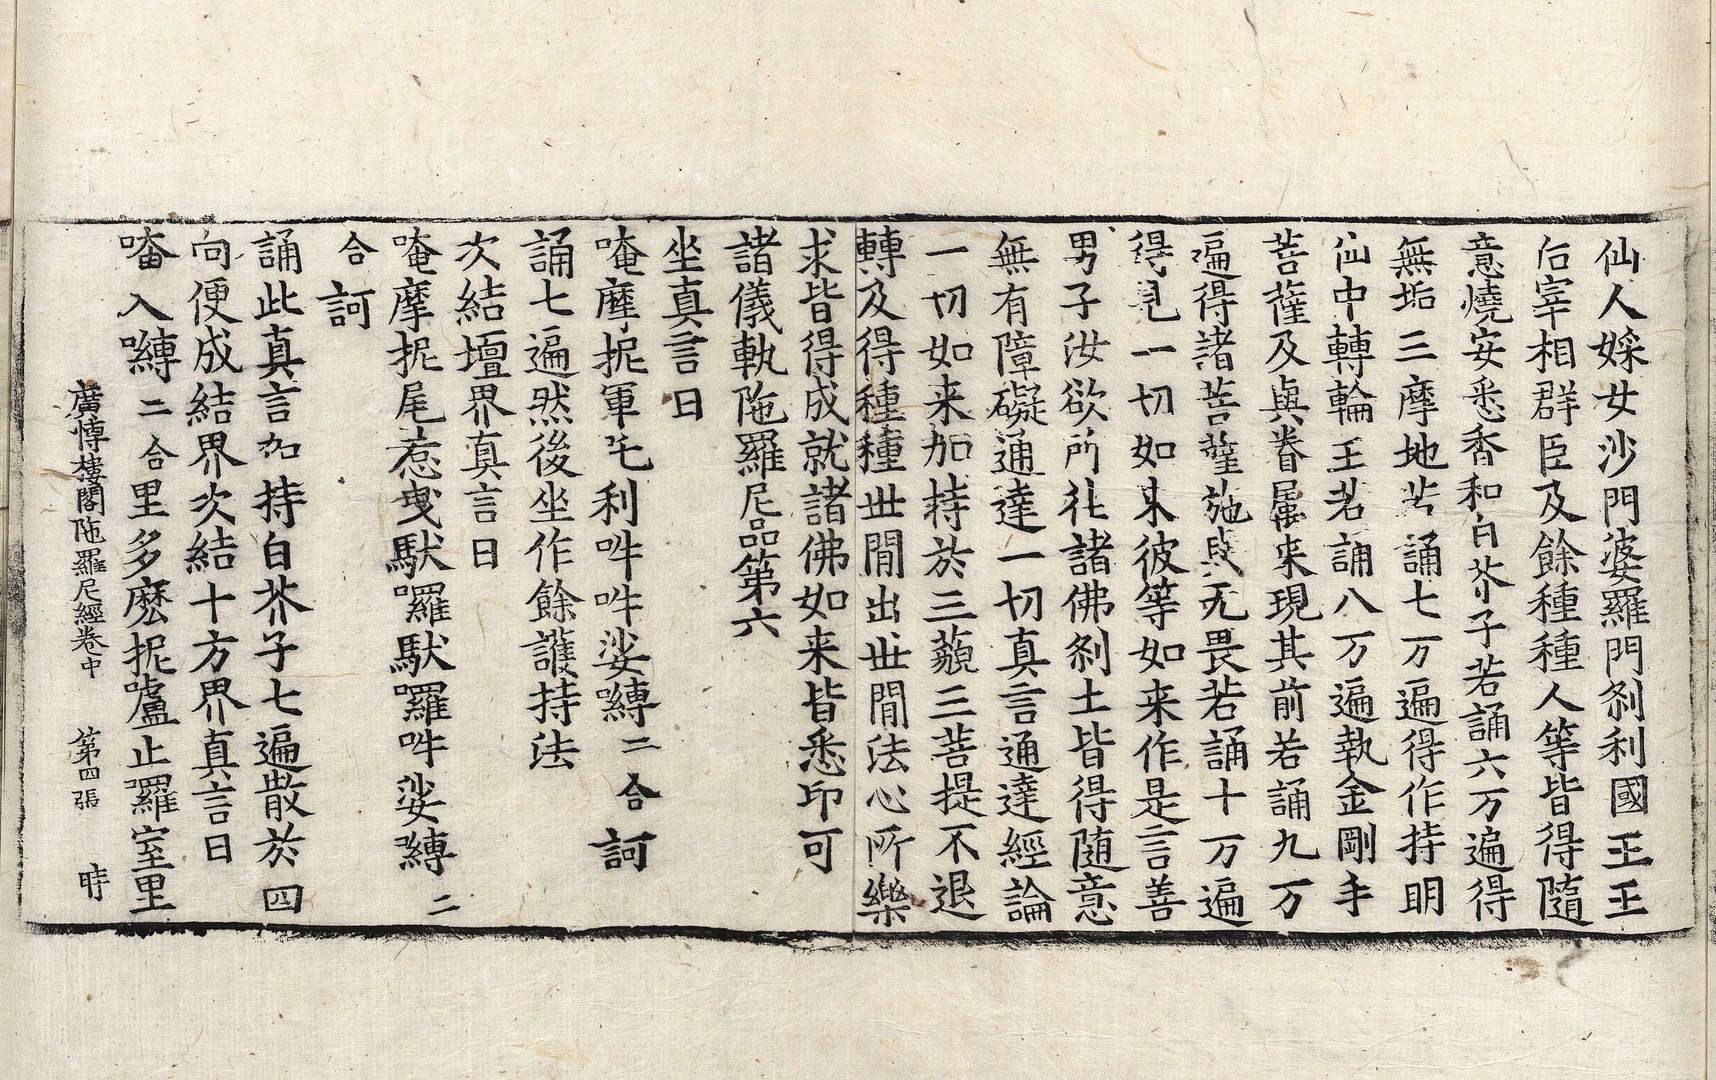 仙人婇女沙門婆羅門刹利國王王
后宰相群臣及餘種種人等皆得隨
意燒安悉香和白芥子若誦六万遍得
無垢三摩地若誦七万遍得作持明
仙中轉輪王若誦八万遍執金剛手
菩薩及與眷屬来現其前若誦九万
遍得諸菩薩施與无畏若誦十万遍
得見一切如来彼等如来作是言善
男子汝欲所往諸佛刹土皆得隨意
無有障礙通達一切真言通達經論
一切如来加持於三藐三菩提不退
轉及得種種世間出世間法心所樂
求皆得成就諸佛如来皆悉印可
諸儀軌陁羅尼品第六
坐真言曰
唵摩抳軍毛利吽吽娑嚩二合訶
誦七遍然後坐作餘護持法
次結壇界真言曰
唵摩抳尾惹曳馱囉馱囉吽娑嚩二
合訶
誦此真言加持白芥子七遍散於四
向便成結界次結十方界真言曰
唵入嚩二合里多麽抳嚧止羅室里
廣愽樓閣陁羅尼經卷中 第四張 時